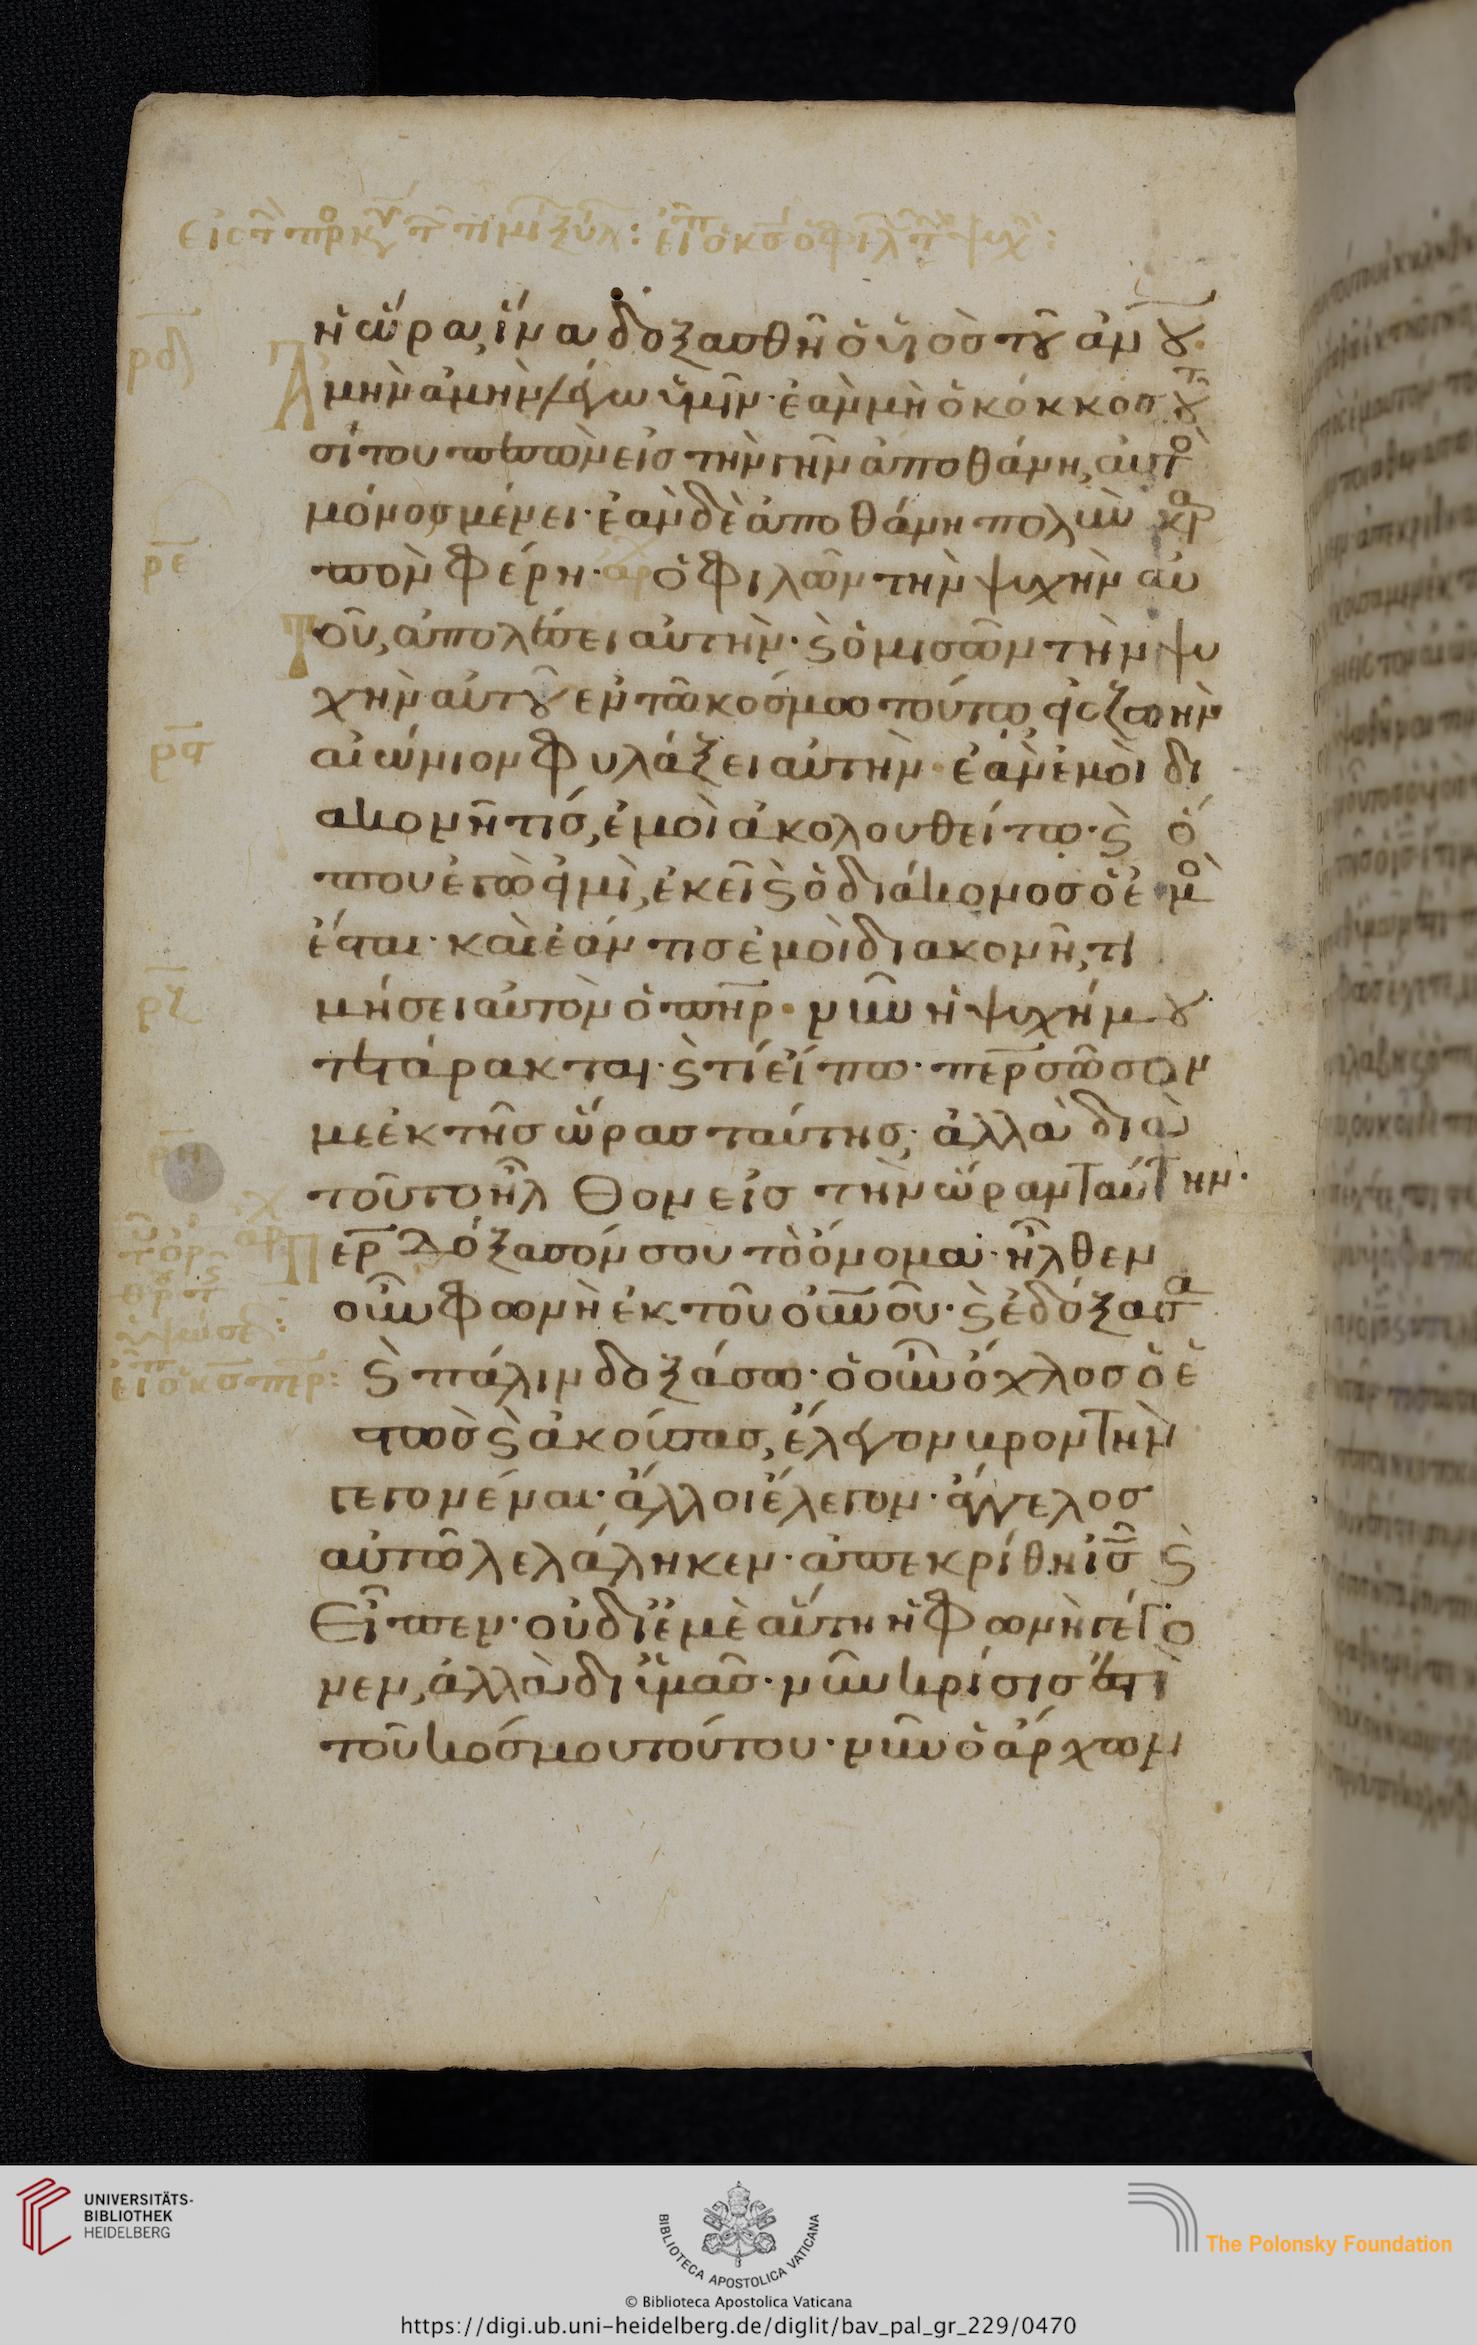 ἡ ὥρα, ἵνα δοξασθῆ ὁ υἱὸσ τοῦ ἀνου·
Ἀμὴν ἀμὴν λέγω ὑμῖν· ἐὰν μὴ ὁ κόκκοσ τοῦ
σίτου πεσὼν εἰσ τὴν γῆν ἀποθάνη, αὐτὸ
μόνοσ μένει· ἐὰν δὲ ἀποθάνη πολὺν καρ
πὸν φέρη· ὁ φιλῶν τὴν ψυχὴν αὐ
τοῦ, ἀπολέσει αὐτὴν· ϛ ὁ μισῶν τὴν ψυ
χὴν αὐτοῦ ἐν τῶ κόσμω τούτω, εἰσ ζωὴν
αἰώνιον φυλάξει αὐτὴν· ἐὰν ἐμοὶ δι
ακονῆ τίσ, ἐμοὶ ἀκολουθείτω· ϛ ὅ
που ἐγὼ εἰμὶ, ἐκεῖ ϛ ὁ διάκονοσ ὁ ἐμὸ
ἔσται· καὶ ἐάν τισ ἐμοὶ διακονῆ, τι
μήσει αὐτὸν ὁ πηρ· νῦν ἡ ψυχή μου
τετάρακται· ϛ τί εἴπω· περ σῶσον
με ἐκ τῆσ ὥρασ ταύτησ· ἀλλὰ διὰ
τοῦτο ἦλθον εἰσ τὴν ὥραν ταύτην·
Περ δόξασόν σου τὸ ὄνομα· ἦλθεν
οὖν φωνὴ ἐκ τοῦ οὐνοῦ· ϛ ἐδόξασα
ϛ πάλιν δοξάσω· ὁ οὖν ὄχλοσ ὁ ἑ
στὼσ ϛ ἀκούσασ, ἔλεγον βροντὴν
γεγονέναι· ἄλλοι ἔλεγον· ἄγγελοσ
αὐτῶ λελάληκεν· ἀπεκρίθη ισ ϛ
εἶπεν· οὐ δι ἐμὲ αὕτη ἡ φωνὴ γέγο
νεν, ἀλλὰ δι ὑμᾶσ· νῦν κρίσισ ἐστὶ
τοῦ κόσμου τούτου· νῦν ὁ ἄρχων
ρδ
ρε
ρϛ
ρζ
ρη
UNIVERSITÄTS-
BIBLIOTHEK
HEIDELBERG
BIBLIOTECA APOSTOLICA VATICANA
© Biblioteca Apostolica Vaticana
The Polonsky Foundation
https://digi.ub.uni-heidelberg.de/diglit/bav_pal_gr_229/0470